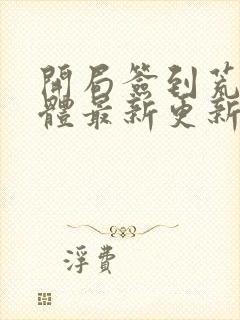 開局簽到荒
體最新更新
浮費